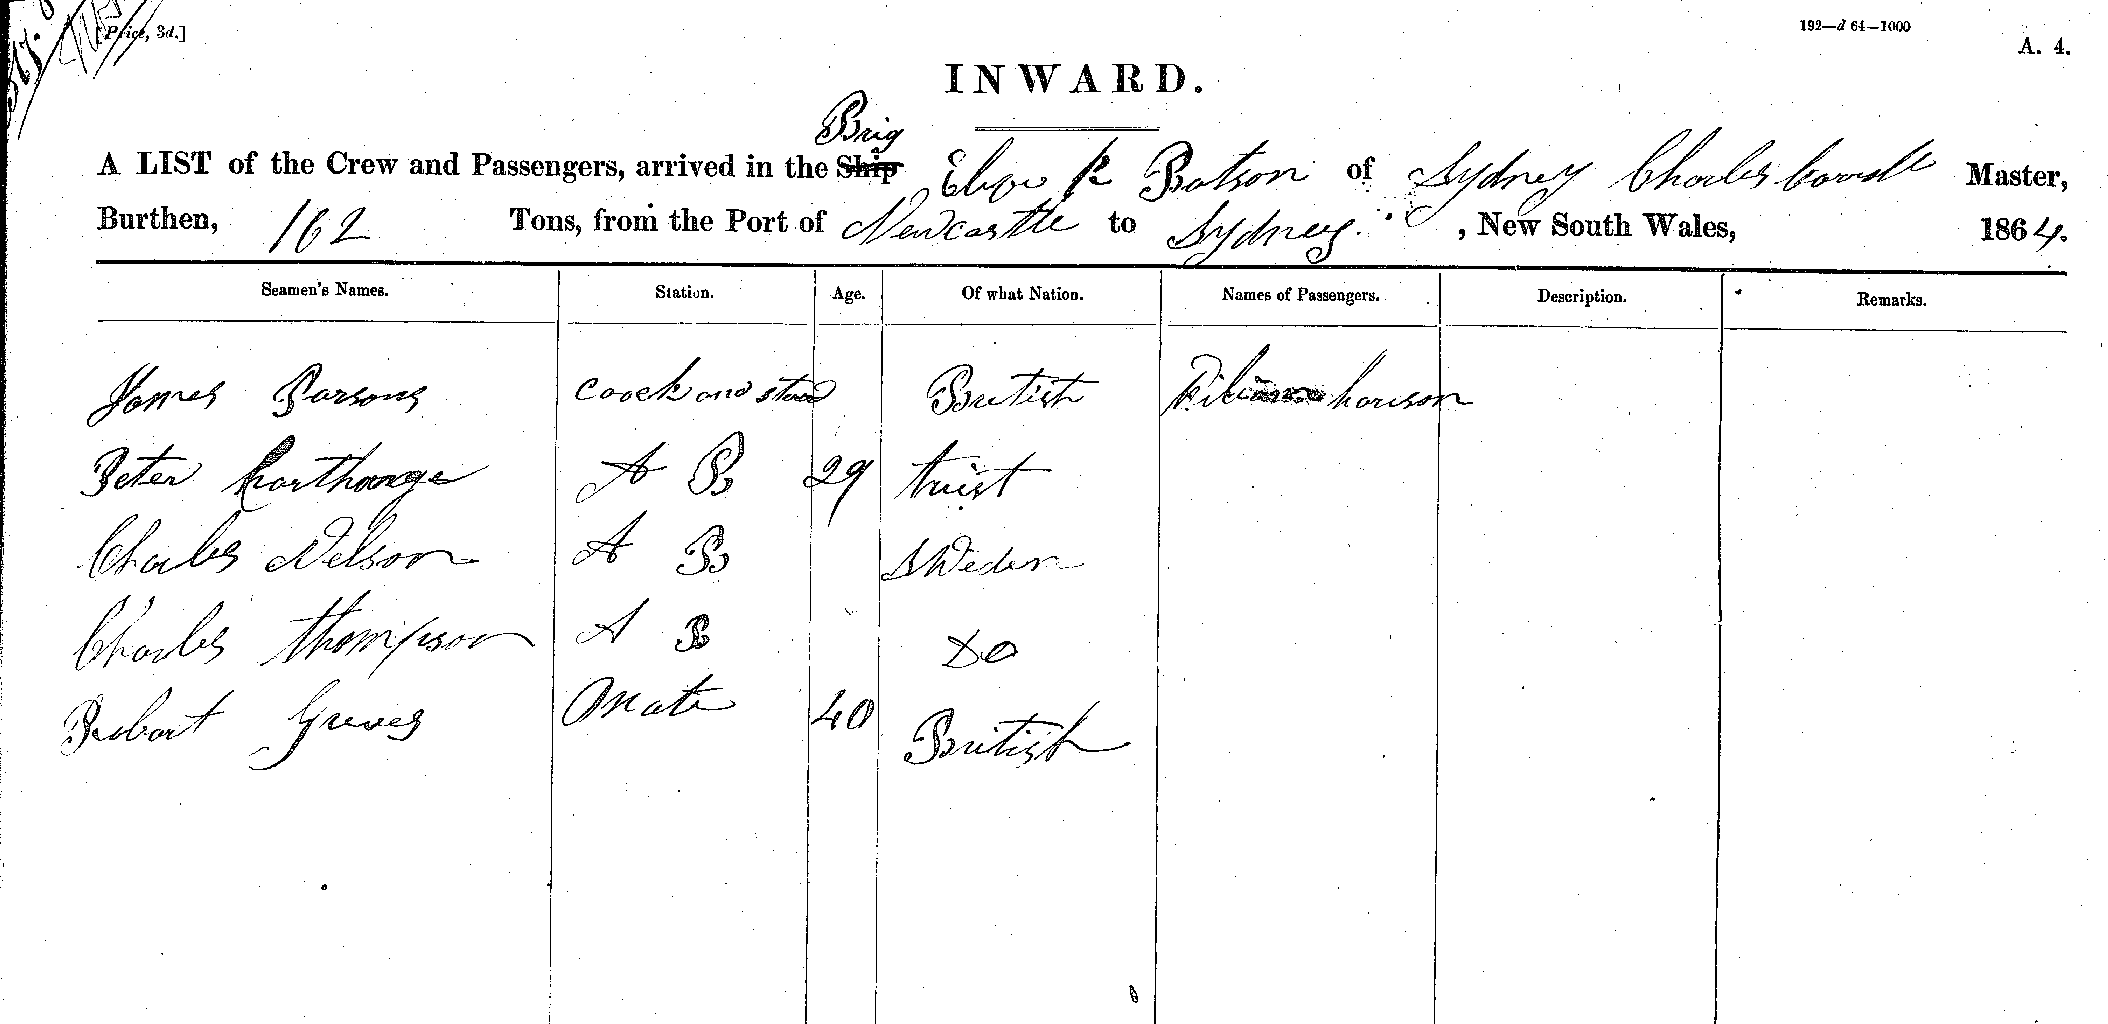 [Price, 3d.]
192—d 64—1000
A. 4.
INWARD.
Brig
A LIST of the Crew and Passengers, arrived in the Ship R Batson of Sydney Charles Master,
Burthen, 162 Tons, from the Port of Newcastle to Sydney , New South Wales, 1864.
Seamen's Names. Station. Age. Of what Nation. Names of Passengers. Description. Remarks.
James Parsons Coock and British harison
Peter A B 29
Charles Nelson A B Sweden
Charles thompson A B Do
Robart Greves Mate 40 British